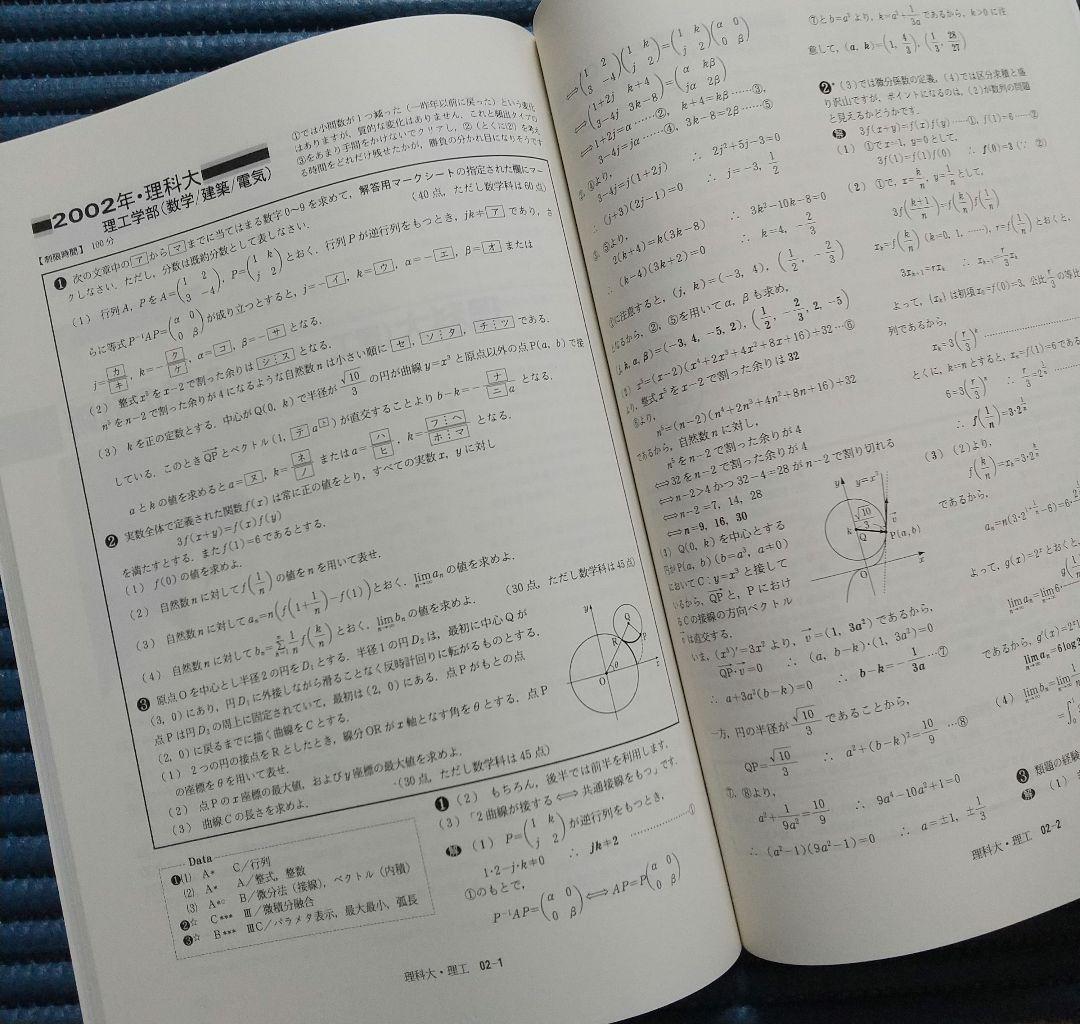 ①では小問数が1つ減った(一昨年以前に戻った)という変化
はありますが,質的な変化はありません.これと頻出タイプの
③をあまり手間をかけないでクリアし,②(とくに(2))を考え
る時間をどれだけ残せたかが,勝負の分かれ目になりそうです
2002年・理科大
理工学部(数学/建築/電気)
【制限時間】 100分
(40点,ただし数学科は60点)
❶ 次の文章中の ア から マ までに当てはまる数字0~9を求めて,解答用マークシートの指定された欄にマー
クしなさい.ただし,分数は既約分数として表しなさい.
(1) 行列A, PをA=(1 2 3 −4), P=(1 k j 2)とおく.行列Pが逆行列をもつとき,jk≠ ア であり,さ
らに等式P⁻¹AP=(α 0 0 β)が成り立つとすると,j=−イ, k=ウ, α=−エ, β=オ または
j=カ/キ, k=−ク/ケ, α=コ, β=−サ となる.
(2) 整式x⁵をx−2で割った余りは シス となる.
n⁵をn−2で割った余りが4になるような自然数nは小さい順に セ, ソタ, チツ である.
(3) kを正の定数とする.中心がQ(0, k)で半径が√10/3の円が曲線y=x³と原点以外の点P(a, b)で接
している.このときQPとベクトル(1, テ a^ト)が直交することよりb−k=−ナ/ニa となる.
aとkの値を求めるとa=ヌ, k=ネ/ノ またはa=ハ/ヒ, k=フヘ/ホマ となる.
❷ 実数全体で定義された関数f(x)は常に正の値をとり,すべての実数x, yに対し
3f(x+y)=f(x)f(y)
を満たすとする.またf(1)=6であるとする.
(1) f(0)の値を求めよ.
(2) 自然数nに対してf(1/n)の値をnを用いて表せ.
(3) 自然数nに対してaₙ=n(f(1+1/n)−f(1))とおく.lim aₙの値を求めよ.
n→∞
(4) 自然数nに対してbₙ=Σ 1/n f(k/n)とおく.lim bₙの値を求めよ.
(30点,ただし数学科は45点)
❸ 原点Oを中心とし半径2の円をD₁とする.半径1の円D₂は,最初に中心Qが
(3, 0)にあり,円D₁に外接しながら滑ることなく反時計回りに転がるものとする.
点Pは円D₂の周上に固定されていて,最初は(2, 0)にある.点Pがもとの点
(2, 0)に戻るまでに描く曲線をCとする.
(1) 2つの円の接点をRとしたとき,線分ORがx軸となす角をθとする.点P
の座標をθを用いて表せ.
(2) 点Pのx座標の最大値,およびy座標の最大値を求めよ.
(3) 曲線Cの長さを求めよ.
(30点,ただし数学科は45点)
y
Q
R
P
θ
O
x
Data
❶(1) A* C/行列
(2) A* A/整式,整数
(3) A*○ B/微分法(接線),ベクトル(内積)
❷☆ C*** Ⅲ/微積分融合
❸☆ B*** ⅢC/パラメタ表示,最大最小,弧長
❶ (2) もちろん,後半では前半を利用します.
(3) 「2曲線が接する⟺共通接線をもつ」です.
解 (1) P=(1 k j 2)が逆行列をもつとき,
1·2−j·k≠0 ∴ jk≠2 ……①
①のもとで,
P⁻¹AP=(α 0 0 β)⟺AP=P(α 0 0 β)
理科大・理工 02-1
⟺(1 2 3 −4)(1 k j 2)=(1 k j 2)(α 0 0 β)
⟺(1+2j k+4 3−4j 3k−8)=(α kβ jα 2β)
⟺1+2j=α……②, k+4=kβ……③,
3−4j=jα……④, 3k−8=2β……⑤
②, ④より,
3−4j=j(1+2j) ∴ 2j²+5j−3=0
∴ (j+3)(2j−1)=0 ∴ j=−3, 1/2
③, ⑤より,
2(k+4)=k(3k−8) ∴ 3k²−10k−8=0
∴ (k−4)(3k+2)=0 ∴ k=4, −2/3
①に注意すると,(j, k)=(−3, 4), (1/2, −2/3)
となるから,②, ⑤を用いてα, βも求め,
(j, k, α, β)=(−3, 4, −5, 2), (1/2, −2/3, 2, −5)
(2) x⁵=(x−2)(x⁴+2x³+4x²+8x+16)+32…⑥
より,整式x⁵をx−2で割った余りは32
⑥より,
n⁵=(n−2)(n⁴+2n³+4n²+8n+16)+32
であるから,自然数nに対し,
n⁵をn−2で割った余りが4
⟺32をn−2で割った余りが4
⟺n−2>4かつ32−4=28がn−2で割り切れる
⟺n−2=7, 14, 28
⟺n=9, 16, 30
(3) Q(0, k)を中心とする
円がP(a, b)(b=a³, a≠0)
においてC:y=x³と接して
いるから,QPと,Pにおけ
るCの接線の方向ベクトル
vは直交する.
y
y=x³
√10/3
k
Q
v
P(a, b)
x
いま,(x³)′=3x²より,v=(1, 3a²)であるから,
QP·v=0 ∴ (a, b−k)·(1, 3a²)=0
∴ a+3a²(b−k)=0 ∴ b−k=−1/3a …⑦
一方,円の半径が√10/3であることから,
QP=√10/3 ∴ a²+(b−k)²=10/9 …⑧
⑦, ⑧より,
a²+1/9a²=10/9 ∴ 9a⁴−10a²+1=0
∴ (a²−1)(9a²−1)=0 ∴ a=±1, ±1/3
⑦とb=a³より,k=a³+1/3aであるから,k>0に注
意して,(a, k)=(1, 4/3), (1/3, 28/27)
❷ (3)では微分係数の定義,(4)では区分求積と盛
り沢山ですが,ポイントになるのは,(2)が数列の問題
と見えるかどうかです.
解 3f(x+y)=f(x)f(y)……①, f(1)=6……②
(1) ①でx=1, y=0として,
3f(1)=f(1)f(0) ∴ f(0)=3(∵ ②)
(2) ①で,x=k/n, y=1/nとして,
3f(k+1/n)=f(k/n)f(1/n)
xₖ=f(k/n)(k=0, 1, ……), r=f(1/n)とおくと,
3xₖ₊₁=rxₖ ∴ xₖ₊₁=r/3 xₖ
よって,{xₖ}は初項x₀=f(0)=3,公比r/3の等比
列であるから,
xₖ=3(r/3)ᵏ
とくに,k=nとすると,xₙ=f(1)=6である
6=3(r/3)ⁿ ∴ r/3=2^(1/n)
∴ f(1/n)=3·2^(1/n)
(3) (2)より,
f(k/n)=xₖ=3·2^(k/n)
であるから,
aₙ=n(3·2^(1+1/n)−6)=6·
よって,g(x)=2ˣとおくと,
lim aₙ=lim 6·
であるから,g′(x)=2ˣl
lim aₙ=6log2
(4) lim bₙ=lim
❸ 類題の経験
解 (1)
理科大・理工 02-2